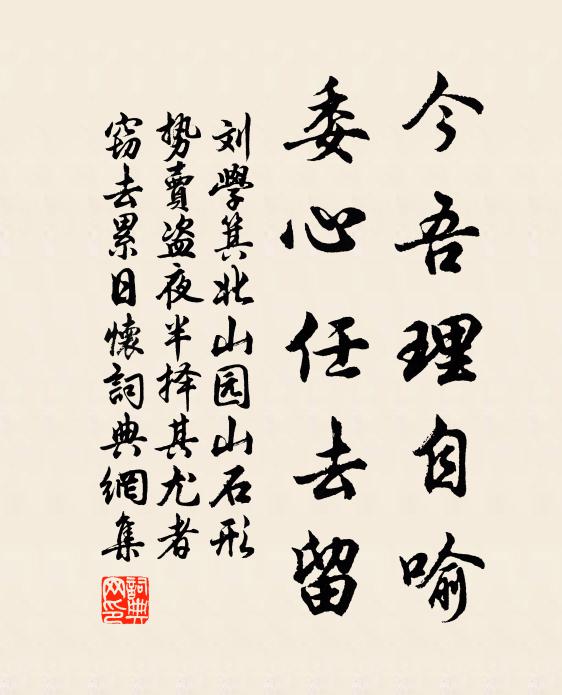 今吾理自喻
委心任去留
刘學箕北山园山石形
势賣盗夜半择其尤者
窃去累日懷詞典網集
詞典
网印